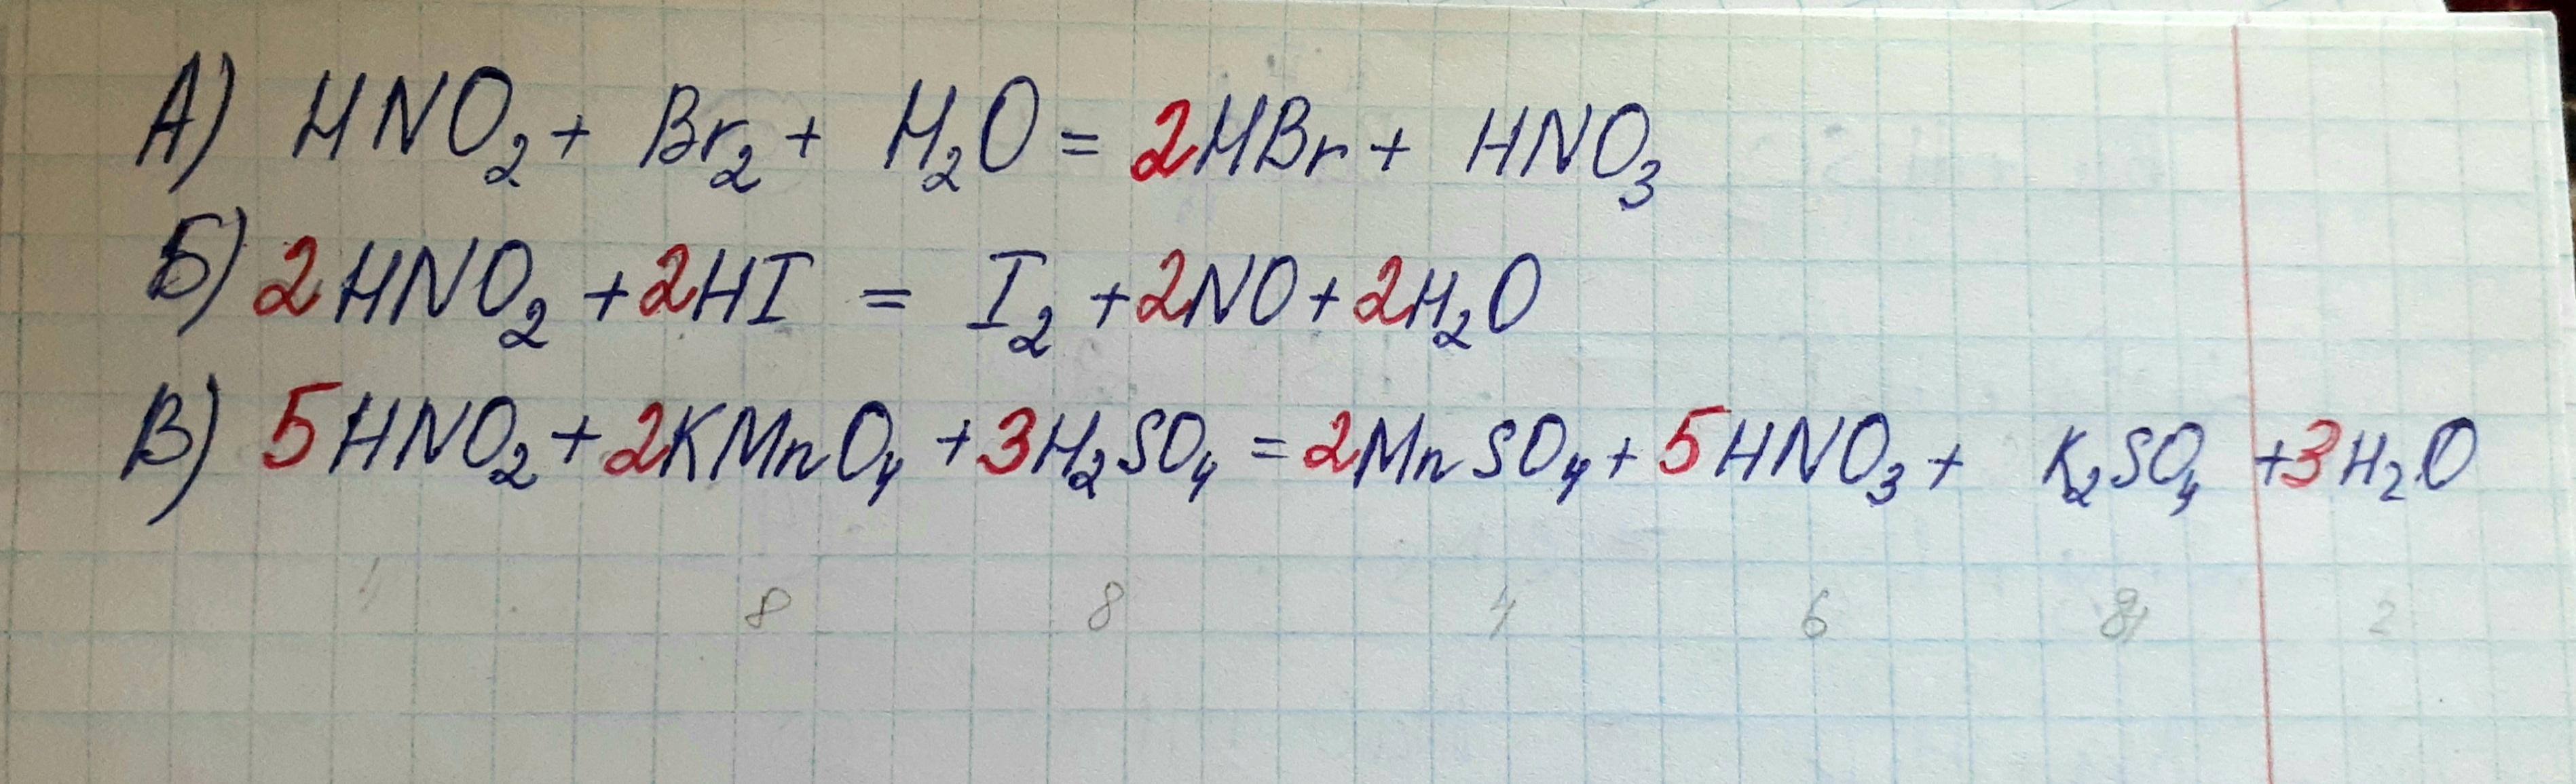 А) HNO₂ + Br₂ + H₂O = 2HBr + HNO₃
Б) 2HNO₂ + 2HI = I₂ + 2NO + 2H₂O
В) 5HNO₂ + 2KMnO₄ + 3H₂SO₄ = 2MnSO₄ + 5HNO₃ + K₂SO₄ + 3H₂O
8 8 4 6 2